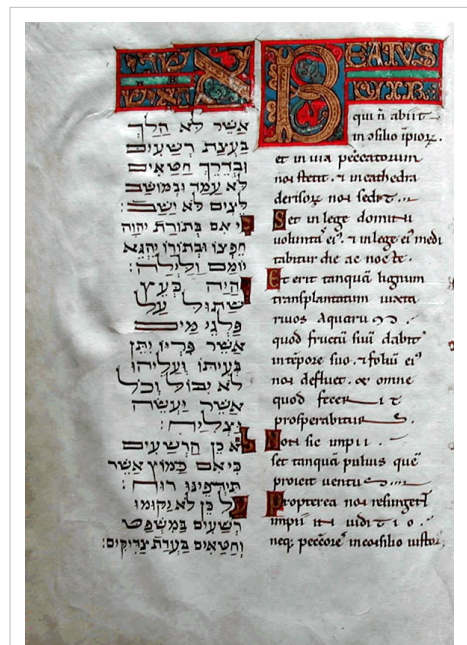 אשרי
האיש
אשר לא הלך
בעצת רשעים
ובדרך חטאים
לא עמד ובמושב
לצים לא ישב:
כי אם בתורת יהוה
חפצו ובתורתו יהגה
יומם ולילה:
והיה כעץ
שתול על
פלגי מים
אשר פריו יתן
בעיתו ועליהו
לא יבול וכל
אשר יעשה
יצליח:
לא כן הרשעים
כי אם כמוץ אשר
תידפינו רוח:
על כן לא יקומו
רשעים במשפט
וחטאים בעדת צדיקים:
BEATUS
VIR
qui n̄ abiit
in ꝯsilio ipioꝝ.
et in uia peccatorum
non stetit. ⁊ in cathedra
derisoꝝ non sedit.
Set in lege domini
uolunta' ei'. ⁊ in lege ei' medi
tabitur die ac nocte.
Et erit tanquā lignum
transplantatum iuxta
riuos aquarū
quod fructū suū dabit
in tēpore suo. ⁊ foliū ei'
non defluet. & omne
quod fecerit
prosperabitur
Non sic impii.
set tanquā puluis quē
proicit uentus
Propterea non resurgent
impii in iuditio.
neq; peccōres in consilio iustoꝝ